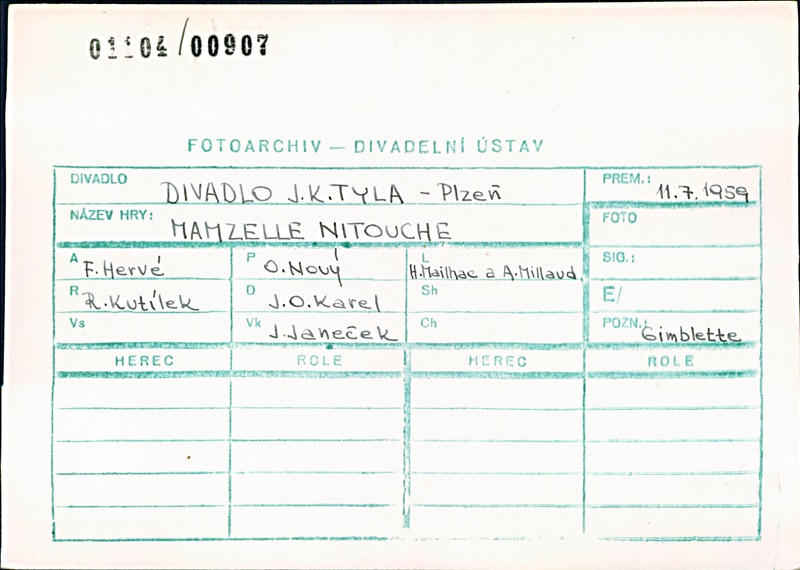 01104/00907
FOTOARCHIV — DIVADELNÍ ÚSTAV
DIVADLO DIVADLO J.K.TYLA - Plzeň PREM.: 11.7.1959
NÁZEV HRY: MAMZELLE NITOUCHE FOTO
A F.Hervé P O.Nový L H.Mailhac a A.Millaud SIG.:
R R.Kutílek D J.O.Karel Sh E/
Vs Vk J.Janeček Ch POZN.: Gimblette
HEREC ROLE HEREC ROLE